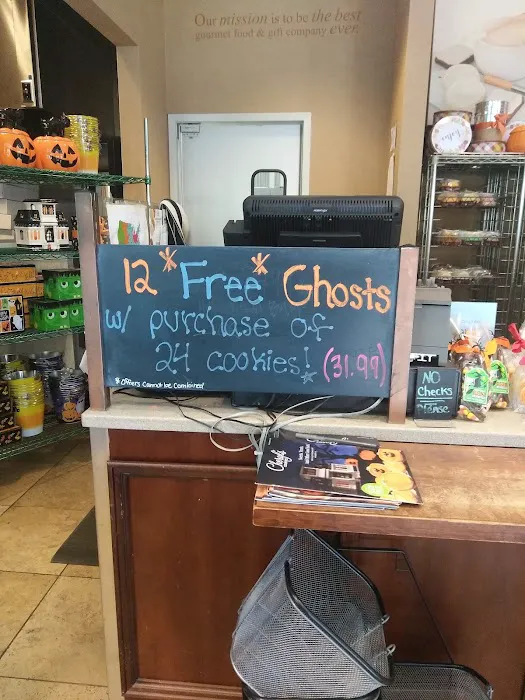 Our mission is to be the best
gourmet food & gift company ever.
12 *Free* Ghosts
w/ purchase of
24 cookies! (31.99)
*offers cannot be combined!
NO
Checks
Please
Cheryl's